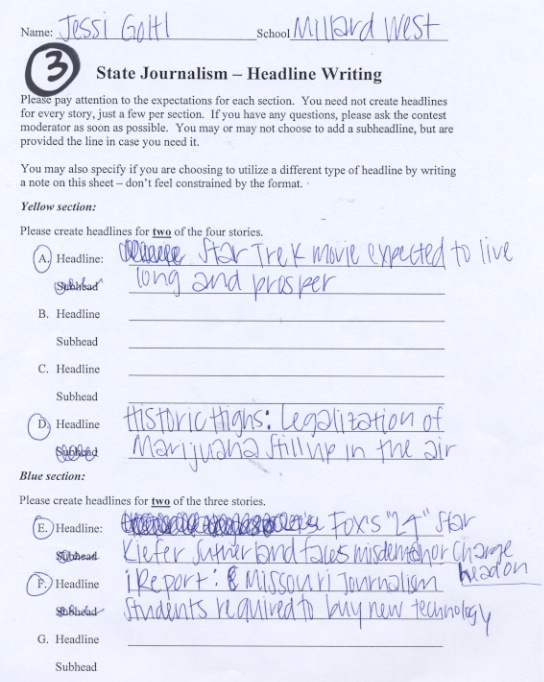 Name: Jessi Gottl School Millard West
3
State Journalism – Headline Writing
Please pay attention to the expectations for each section. You need not create headlines
for every story, just a few per section. If you have any questions, please ask the contest
moderator as soon as possible. You may or may not choose to add a subheadline, but are
provided the line in case you need it.
You may also specify if you are choosing to utilize a different type of headline by writing
a note on this sheet – don't feel constrained by the format.
Yellow section:
Please create headlines for two of the four stories.
A. Headline: Star Trek movie expected to live
Subhead long and prosper
B. Headline
Subhead
C. Headline
Subhead
D. Headline Historic Highs: Legalization of
Subhead Marijuana still up in the air
Blue section:
Please create headlines for two of the three stories.
E. Headline: Fox's "24" star
Subhead Kiefer Sutherland faces misdemanor charge
head on
F. Headline iReport: Missouri Journalism
Subhead students required to buy new technology
G. Headline
Subhead